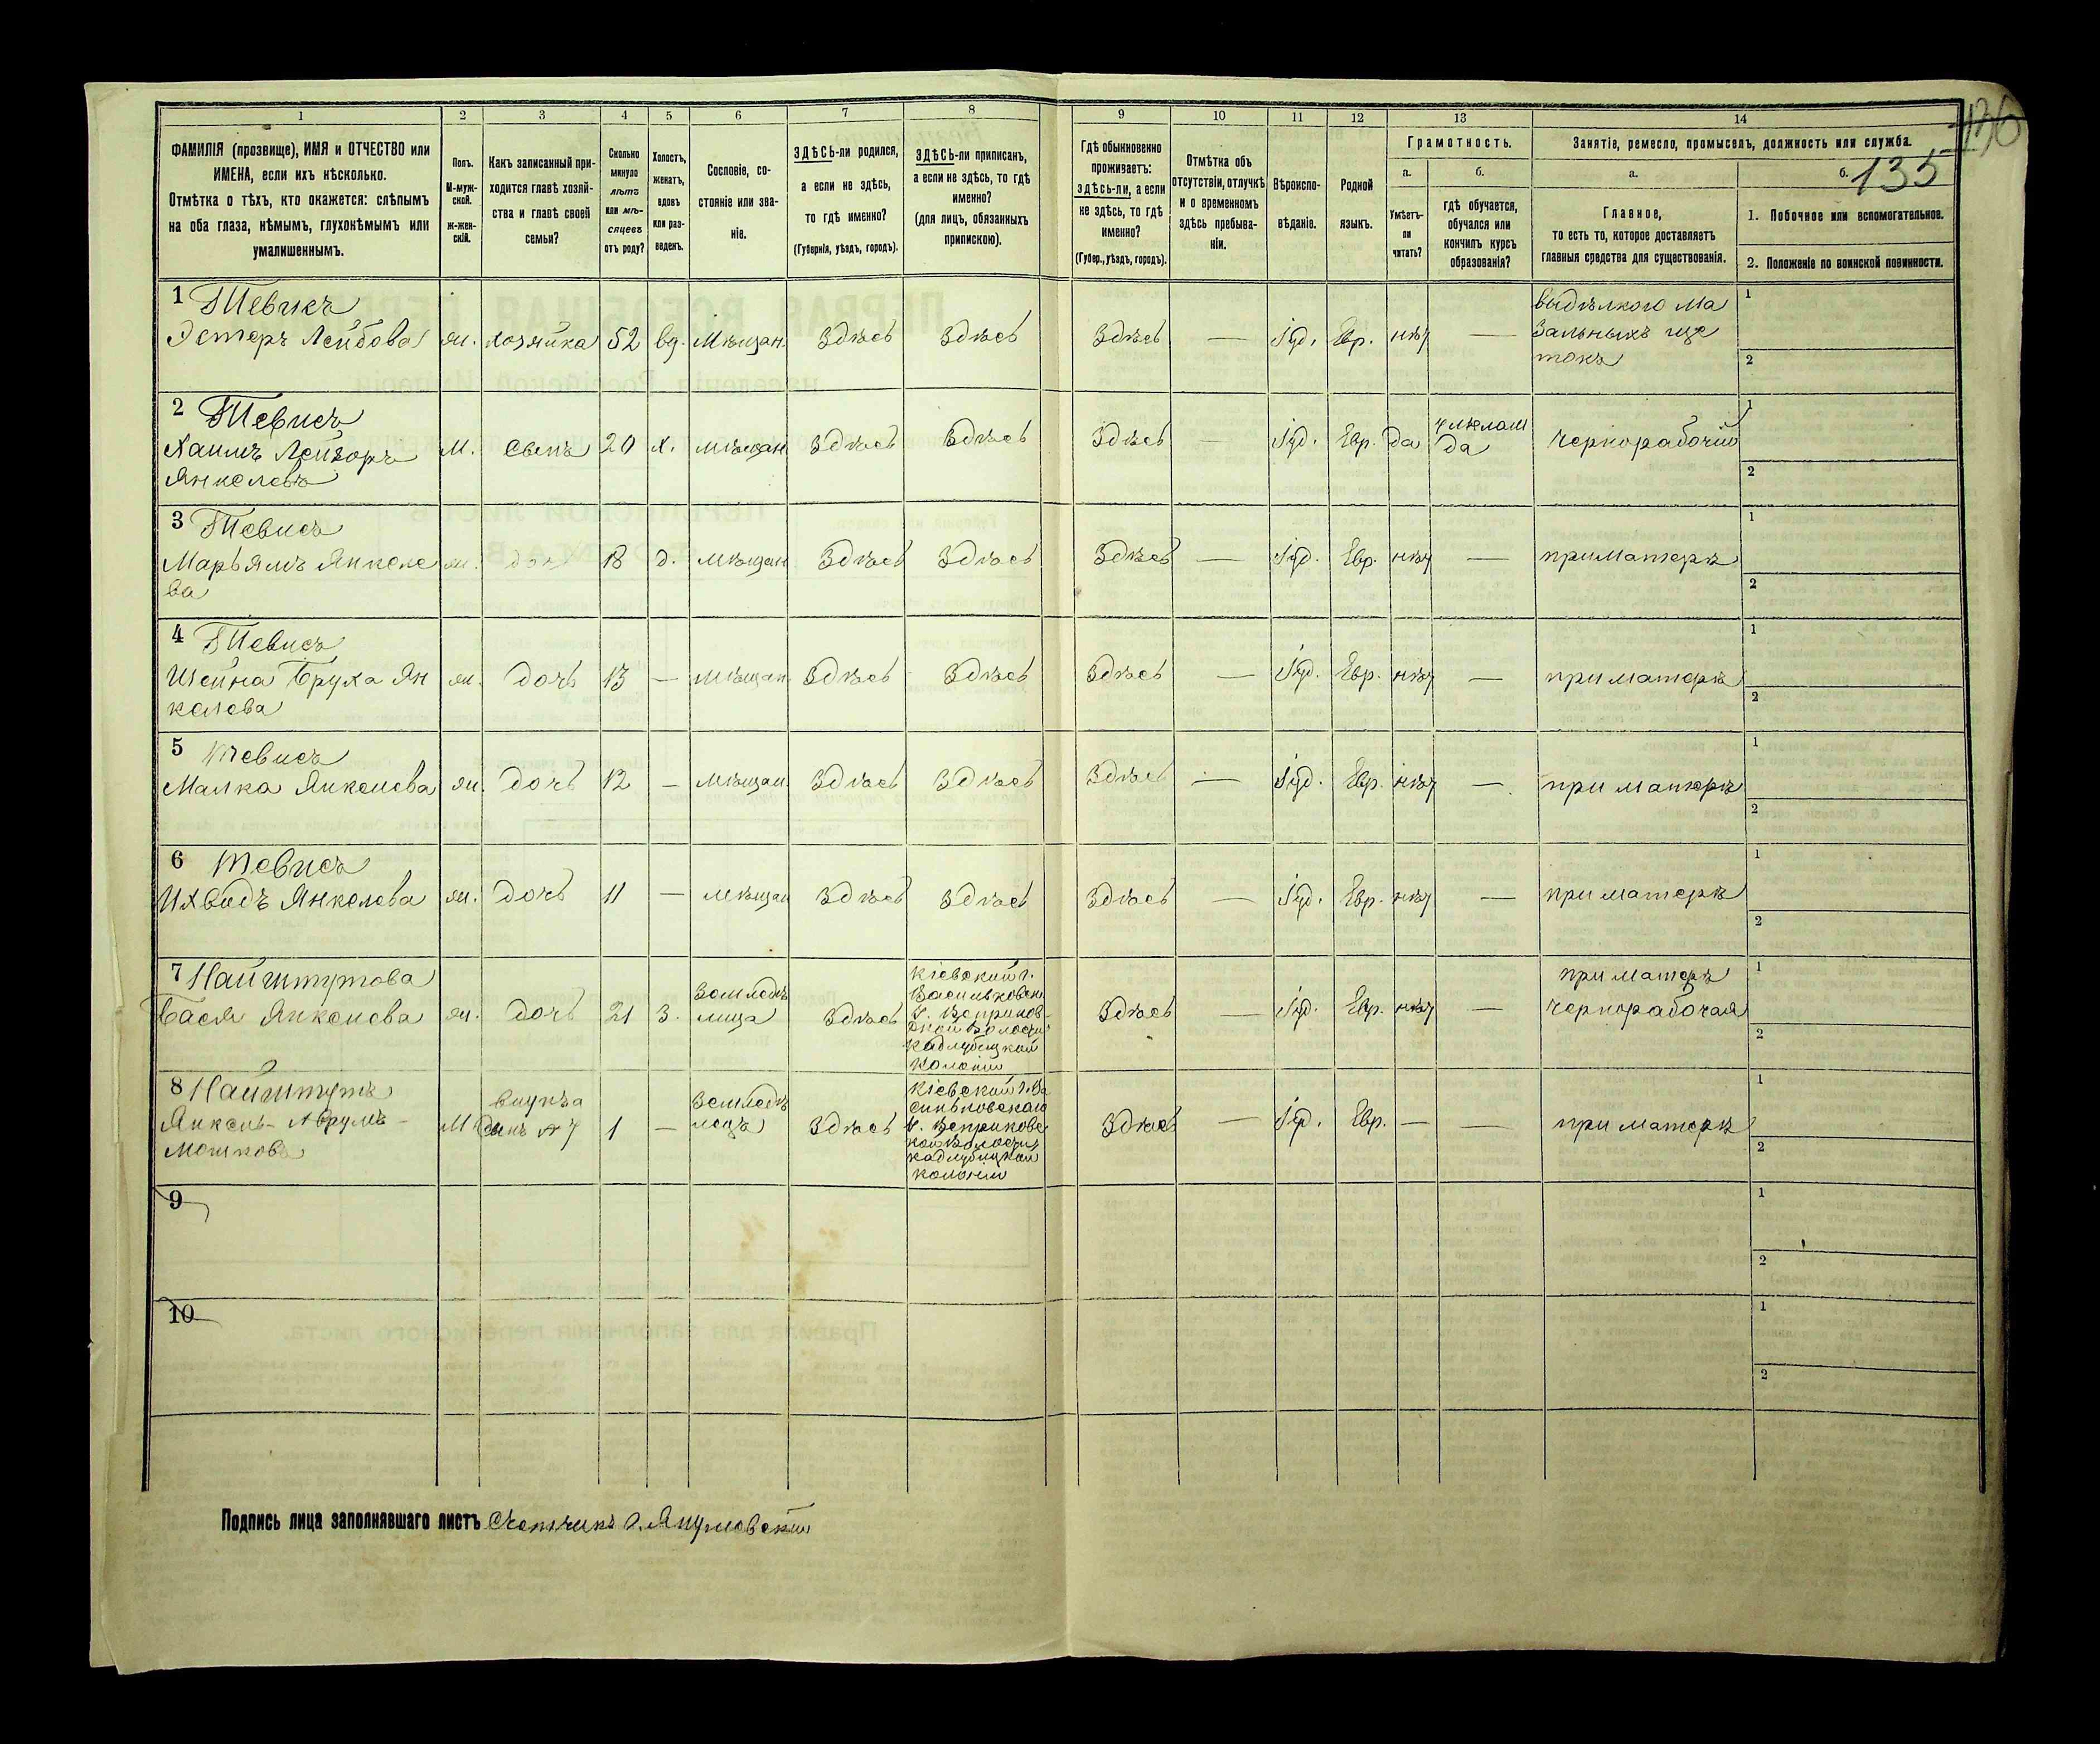 136
135
1 2 3 4 5 6 7 8 9 10 11 12 13 14
ФАМИЛІЯ (прозвище), ИМЯ и ОТЧЕСТВО или
ИМЕНА, если ихъ нѣсколько.
Отмѣтка о тѣхъ, кто окажется: слѣпымъ
на оба глаза, нѣмымъ, глухонѣмымъ или
умалишеннымъ.
Полъ.
М-муж-
ской.
Ж-жен-
скій.
Какъ записанный при-
ходится главѣ хозяй-
ства и главѣ своей
семьи?
Сколько
минуло
лѣтъ
или мѣ-
сяцевъ
отъ роду?
Холостъ,
женатъ,
вдовъ
или раз-
веденъ.
Сословіе, со-
стояніе или зва-
ніе.
ЗДѢСЬ-ли родился,
а если не здѣсь,
то гдѣ именно?
(Губернія, уѣздъ, городъ).
ЗДѢСЬ-ли приписанъ,
а если не здѣсь, то гдѣ
именно?
(для лицъ, обязанныхъ
припискою).
Гдѣ обыкновенно
проживаетъ:
здѣсь-ли, а если
не здѣсь, то гдѣ
именно?
(Губер., уѣздъ, городъ).
Отмѣтка объ
отсутствіи, отлучкѣ
и о временномъ
здѣсь пребыва-
ніи.
Вѣроиспо-
вѣданіе.
Родной
языкъ.
Грамотность.
а.
Умѣетъ-
ли
читать?
б.
гдѣ обучается,
обучался или
кончилъ курсъ
образованія?
Занятіе, ремесло, промыселъ, должность или служба.
а.
Главное,
то есть то, которое доставляетъ
главныя средства для существованія.
б.
1. Побочное или вспомогательное.
2. Положеніе по воинской повинности.
1 Тевисъ
Эстеръ Лейбова ж. хозяйка 52 вд. Мѣщан. Здѣсь Здѣсь Здѣсь — Іуд. Евр. нѣт —
выдѣлкою ма
зальныхъ ще
токъ
1
2
2 Тевисъ
Хаимъ Лейзоръ
Янкелевъ
М. Сынъ 20 х. мѣщан Здѣсь Здѣсь Здѣсь — Іуд. Евр. да
да
чернорабочій
1
2
3 Тевисъ
Марьямъ Янкеле
ва
ж. доч 18 д. мѣщан Здѣсь Здѣсь Здѣсь — Іуд. Евр. нѣт — при матерѣ
1
2
4 Тевисъ
Шейна Бруха Ян
келева
ж. дочь 13 — мѣщан. Здѣсь Здѣсь Здѣсь — Іуд. Евр. нѣт — при матерѣ
1
2
5 Тевисъ
Малка Янкелева ж. дочь 12 — мѣщан. Здѣсь Здѣсь Здѣсь — Іуд. Евр. нѣт — при матерѣ
1
2
6 Тевисъ
Ихвидъ Янкелева ж. дочь 11 — мѣщан Здѣсь Здѣсь Здѣсь — Іуд. Евр. нѣт — при матерѣ
1
2
7 Найштутова
Бася Янкелева ж. дочь 21 з.
Земледѣ
лица
Здѣсь
Кіевской г.
Васильковск
у. Веприков-
ской Волости
Кадлубицкой
Колоніи
Здѣсь — Іуд. Евр. нѣт —
при матерѣ
чернорабочая
1
2
8 Найштутъ
Янкель-Аврумъ-
Мошковъ
М.
внукъ а
сынъ № 7
1 —
Земледѣ
лецъ
Здѣсь
Кіевской г. Ва
сильковскаго
у. Веприковс
кой Волости
Кадлубицкой
Колоніи
Здѣсь — Іуд. Евр. — — при матерѣ
1
2
9
1
2
10
1
2
Подпись лица заполнявшаго листъ Счетчикъ